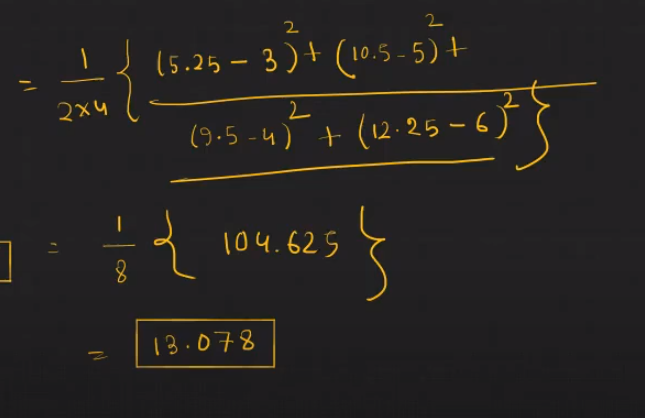 = 1/2×4 { (5.25 - 3)² + (10.5 - 5)² +
(9.5 - 4)² + (12.25 - 6)² }
= 1/8 { 104.625 }
= 13.078